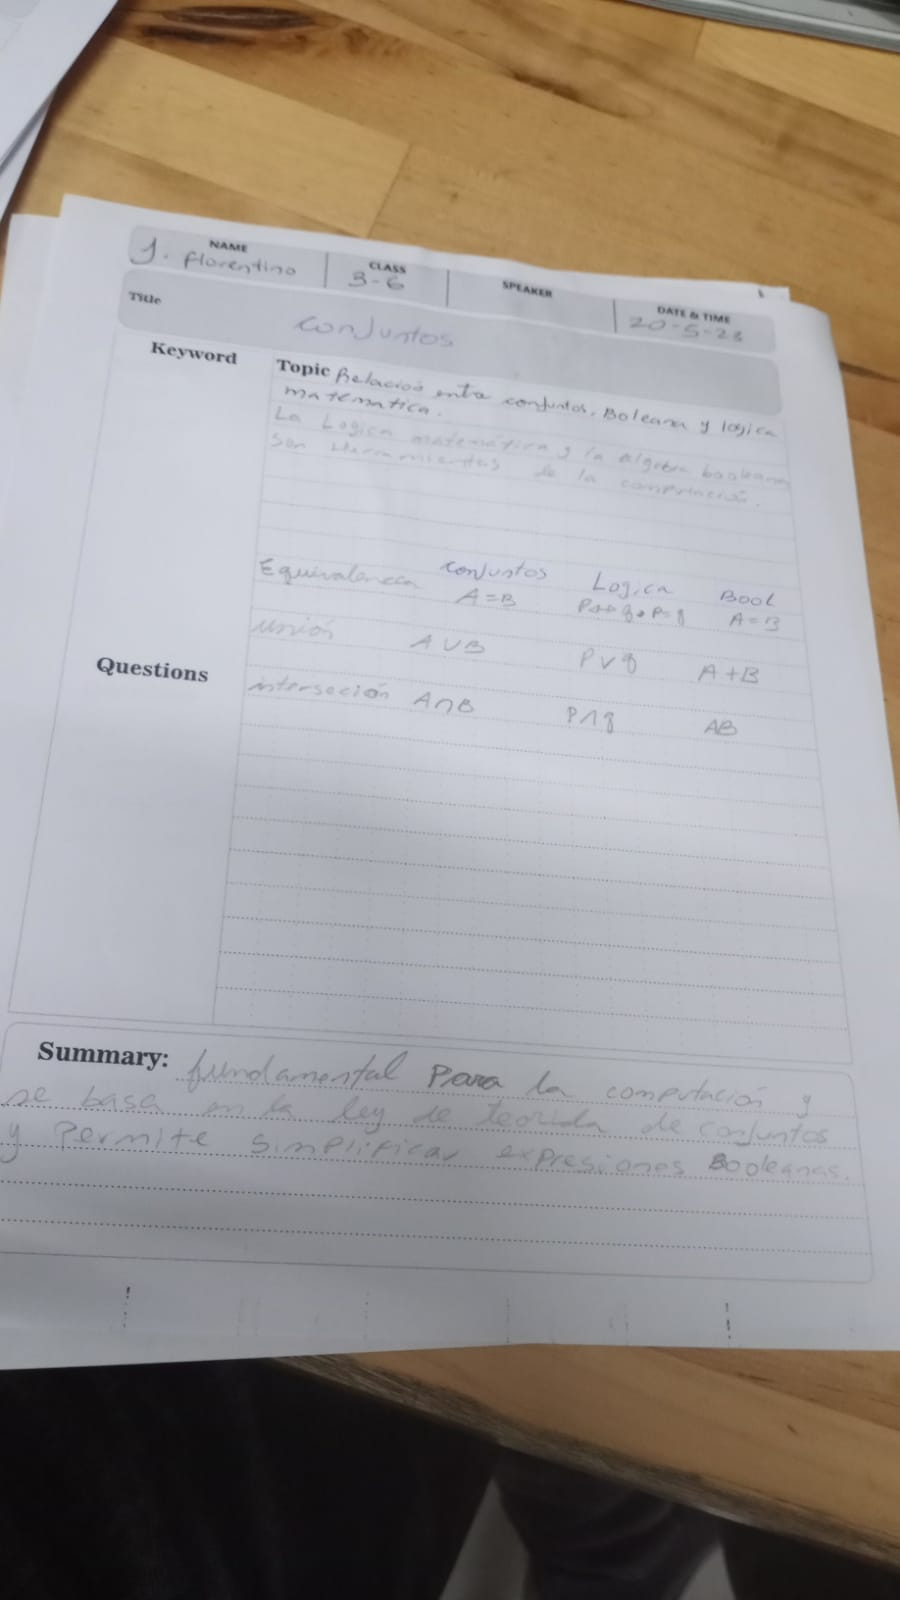 NAME
J. florentino
CLASS
3-6
SPEAKER
DATE & TIME
20-5-23
Title
Conjuntos
Keyword
Topic Relacion entre conjuntos, Boleana y logica
matematica.
La Logica matemática y la algebra booleana
son Herramientas de la computación.
Equivalencia
Conjuntos Logica Bool
A=B A=B
unión A∪B P∨q A+B
Questions
interseción A∩B P∧q AB
Summary: fundamental para la computación y
se basa en la ley de teorida de conjuntos
y Permite simplificar expresiones Booleanas.